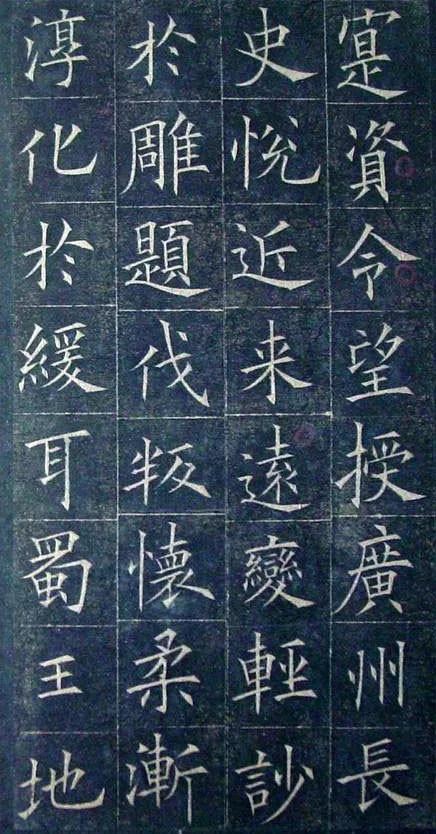 寔資令望授廣州長
史悅近来遠變輕訬
於雕題伐叛懷柔漸
淳化於緩耳蜀王地